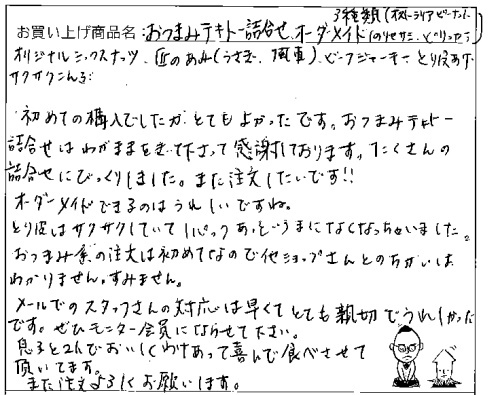 3種類(オーストラリアピーナッツ
お買い上げ商品名:おつまみテキトー詰合せ、オーダーメイド(のりせサミ、ピリッカラ)
オリジナルミックスナッツ、匠のあみ(うさぎ、風車)、ビーフジャーキー とり皮あげ
サクサクこんぶ
初めての購入でしたが とてもよかったです。おつまみテキトー
詰合せはわがままをきいて下さって感謝しております。たくさんの
詰合せにびっくりしました。また注文したいです!!
オーダーメイドできるのはうれしいですね。
とり皮はサクサクしていて1パックあっというまになくなっちゃいました。
おつまみ系の注文は初めてなので他ショップさんとのちがいは
わかりません。すみません。
メールでのスタッフさんの対応は早くてとても親切でうれしかった
です。ぜひモニター会員にならせて下さい。
息子と2人でおいしくわけあって喜んで食べさせて
頂いてます。
また注文よろしくお願いします。